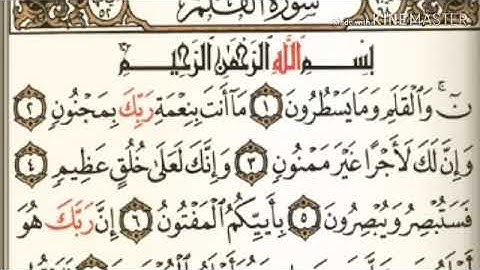 سورة القلم
Made with KINEMASTER
بِسْمِ اللَّهِ الرَّحْمَٰنِ الرَّحِيمِ
نٓ ۚ وَالْقَلَمِ وَمَا يَسْطُرُونَ ﴿١﴾ مَا أَنتَ بِنِعْمَةِ رَبِّكَ بِمَجْنُونٍ ﴿٢﴾
وَإِنَّ لَكَ لَأَجْرًا غَيْرَ مَمْنُونٍ ﴿٣﴾ وَإِنَّكَ لَعَلَىٰ خُلُقٍ عَظِيمٍ ﴿٤﴾
فَسَتُبْصِرُ وَيُبْصِرُونَ ﴿٥﴾ بِأَييِّكُمُ الْمَفْتُونُ ﴿٦﴾ إِنَّ رَبَّكَ هُوَ